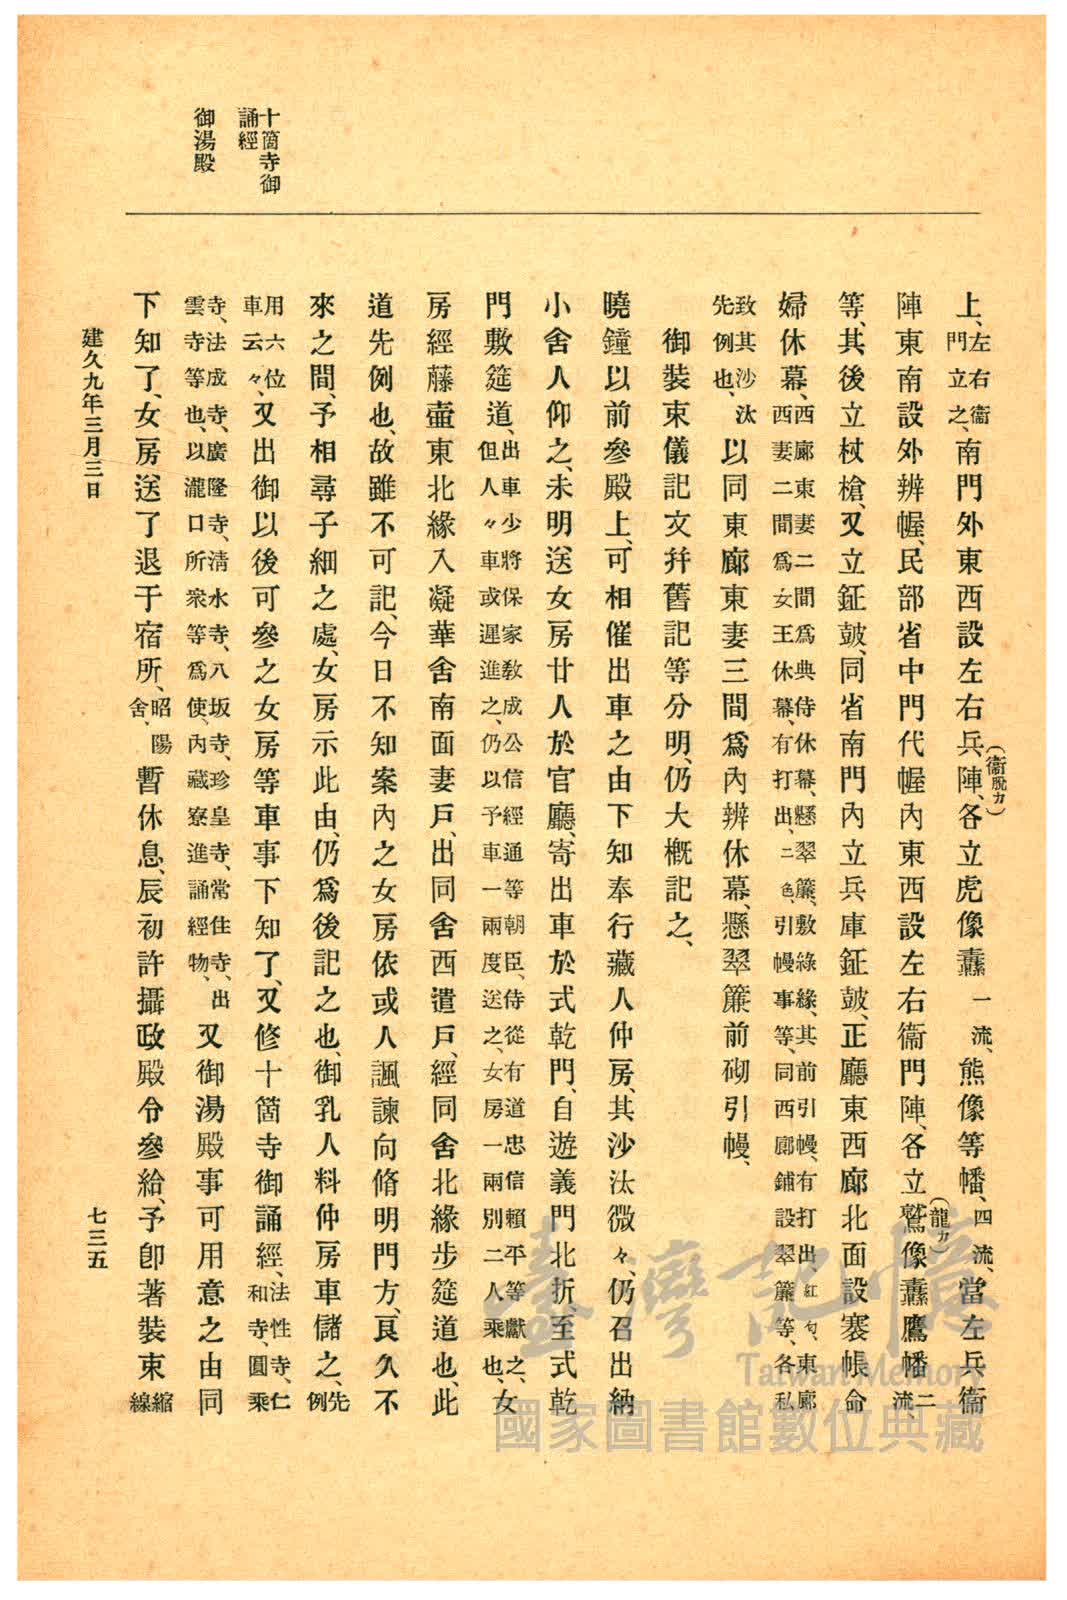 十箇寺御
誦經
御湯殿
上、左右衞門立之、南門外東西設左右兵(衞脫カ)陣、各立虎像纛一流、熊像等幡、四流、當左兵衞
陣東南設外辨幄、民部省中門代幄內東西設左右衞門陣、各立鷲(龍カ)像纛鷹幡二流、
等、其後立杖槍、又立鉦皷、同省南門內立兵庫鉦皷、正廳東西廊北面設褰帳命
婦休幕、西廊東妻二間爲典侍休幕、懸翠簾、敷綠緣、其前引幔、有打出、紅匂、東廊西妻二間爲女王休幕、有打出、二色、引幔事等、同西廊鋪設翠簾等、各私
致其沙汰先例也、以同東廊東妻三間爲內辨休幕、懸翠簾前砌引幔、
御裝束儀記文幷舊記等分明、仍大槪記之、
曉鐘以前參殿上、可相催出車之由下知奉行藏人仲房、其沙汰微々、仍召出納
小舍人仰之、未明送女房廿人於官廳、寄出車於式乾門、自遊義門北折至式乾
門敷筵道、出車少將保家敎成公信經通等朝臣、侍從有道忠信賴平等獻之、但人々車或遲進之、仍以予車一兩度送之、女房一兩別二人乘也、女
房經藤壺東北緣入凝華舍南面妻戶、出同舍西遣戶、經同舍北緣步筵道也、此
道先例也、故雖不可記、今日不知案內之女房依或人諷諫向脩明門方、良久不
來之間、予相尋子細之處、女房示此由、仍爲後記之也、御乳人料仲房車儲之、先例
用六位車云々、又出御以後可參之女房等車事下知了、又修十箇寺御誦經、法性寺、仁和寺、圓乘
寺、法成寺、廣隆寺、淸水寺、八坂寺、珍皇寺、常住寺、出雲寺等也、以瀧口所衆等爲使、內藏寮進誦經物、又御湯殿事可用意之由同
下知了、女房送了退于宿所、昭陽舍、暫休息、辰初許攝政殿令參給、予卽著裝束縮線
建久九年三月三日
七三五
臺灣記憶
Taiwan Memory
國家圖書館數位典藏